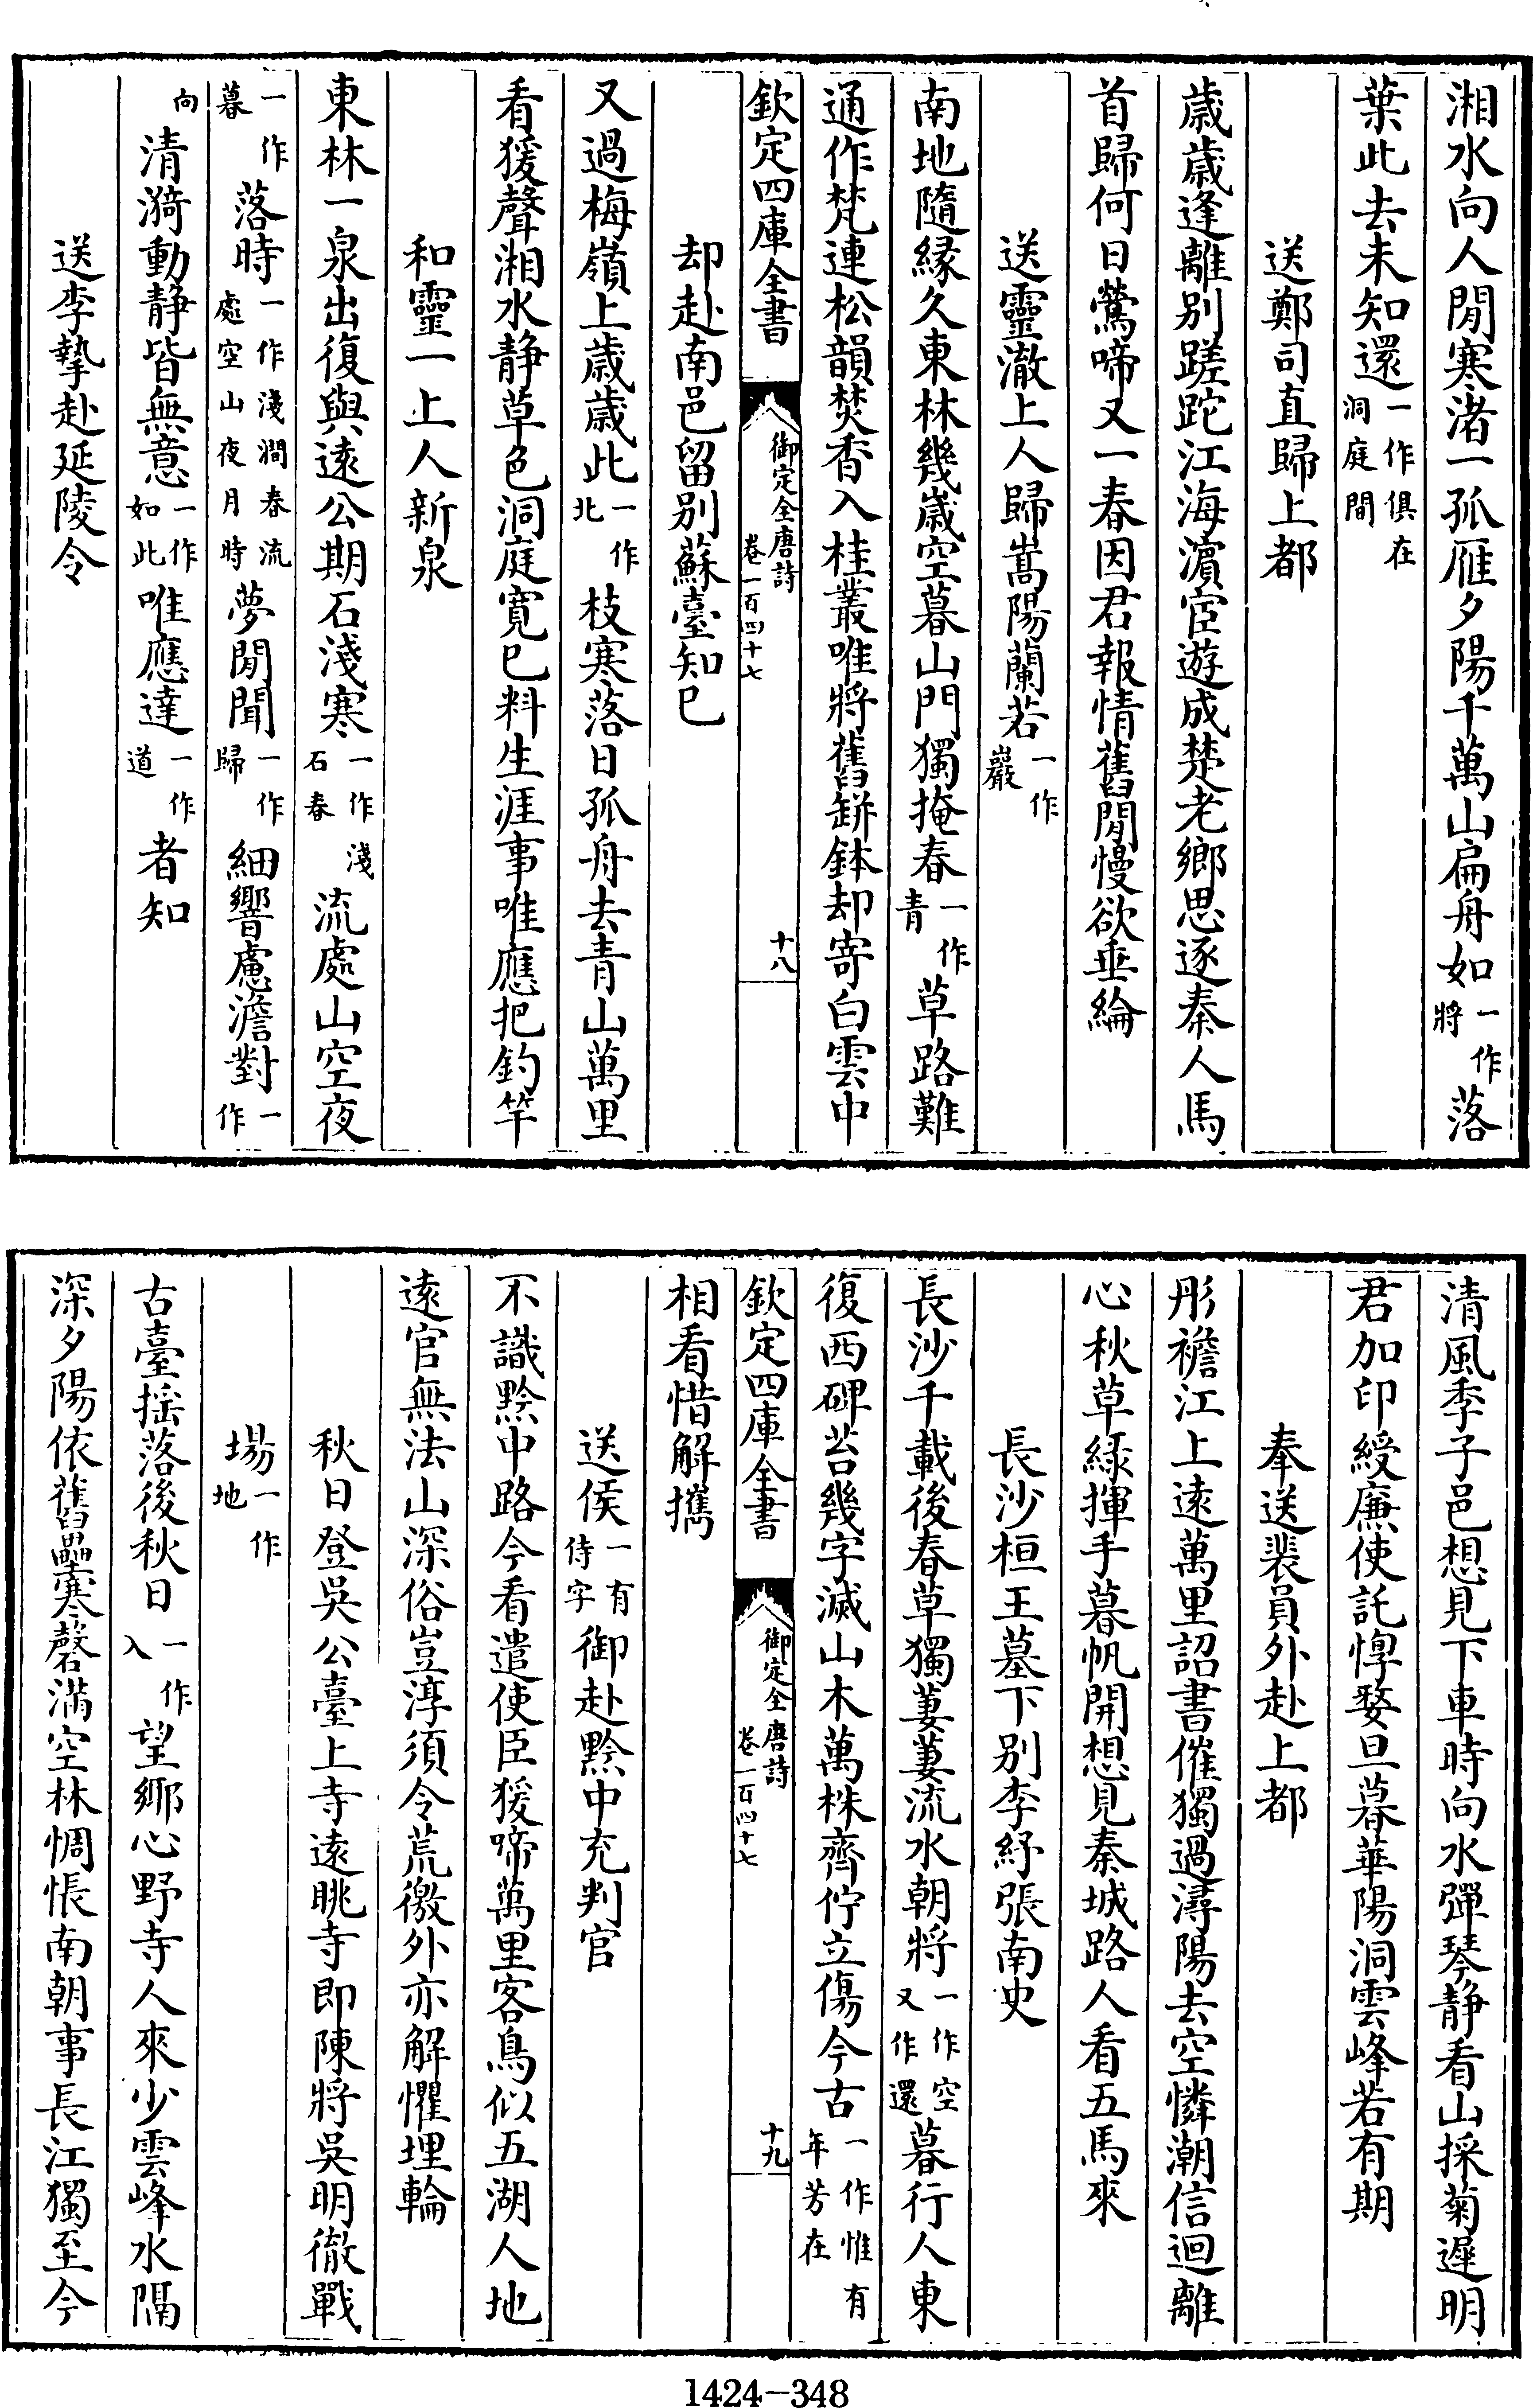 湘水向人閒寒渚一孤雁夕陽千萬山扁舟如一作將落
葉此去未知還一作俱在洞庭間
送鄭司直歸上都
歲歲逢離别蹉跎江海濵宦遊成楚老鄉思逐秦人馬
首歸何日鶯啼又一春因君報情舊閒慢欲垂綸
送靈澈上人歸嵩陽蘭若一作巖
南地隨縁久東林幾歲空暮山門獨掩春一作青草路難
通作梵連松韻焚香入桂叢唯將舊缾鉢却寄白雲中
欽定四庫全書
御定全唐詩
卷一百四十七
十八
却赴南邑留别蘇臺知已
又過梅嶺上歲歲此一作北枝寒落日孤舟去青山萬里
看猨聲湘水静草色洞庭寛已料生涯事唯應把釣竿
和靈一上人新泉
東林一泉出復與遠公期石淺寒一作淺石春流處山空夜
一作暮落時一作淺澗春流處空山夜月時夢閒聞一作歸細響慮澹對一作
向清漪動静皆無意一作如此唯應達一作道者知
送李摯赴延陵令
清風季子邑想見下車時向水彈琴静看山採菊遲明
君加印綬廉使託惸嫠旦暮華陽洞雲峰若有期
奉送裴員外赴上都
彤襜江上遠萬里詔書催獨過潯陽去空憐潮信迴離
心秋草緑揮手暮帆開想見秦城路人看五馬來
長沙桓王墓下别李紓張南史
長沙千載後春草獨萋萋流水朝將一作空又作還暮行人東
復西碑苔幾字滅山木萬株齊佇立傷今古一作惟有年芳在
欽定四庫全書
御定全唐詩
卷一百四十七
十九
相看惜解攜
送侯一有侍字御赴黔中充判官
不識黔中路今看遣使臣猨啼萬里客鳥似五湖人地
遠官無法山深俗豈淳須令荒徼外亦解懼埋輪
秋日登吳公臺上寺遠眺寺即陳將吳明徹戰
場一作地
古臺揺落後秋日一作入望鄉心野寺人來少雲峰水隔
深夕陽依舊壘寒磬滿空林惆悵南朝事長江獨至今
1424-348